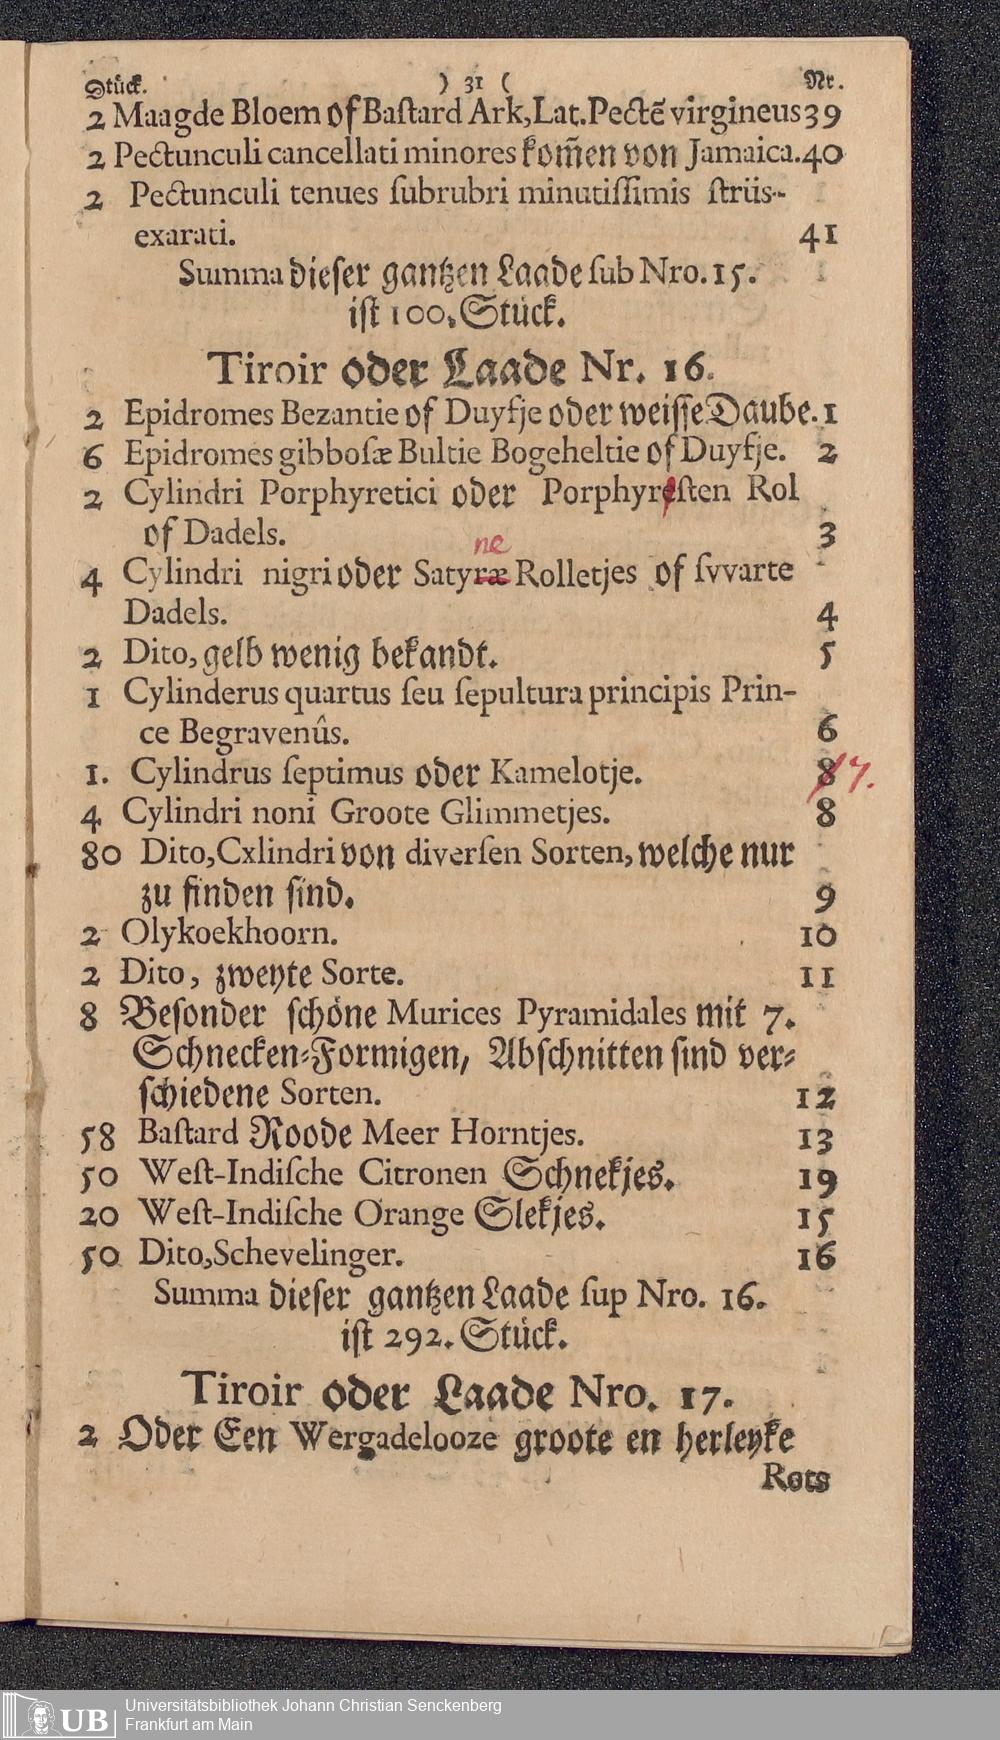 Stück. ) 31 ( Nr.
2 Maagde Bloem of Bastard Ark, Lat. Pectẽ virgineus 39
2 Pectunculi cancellati minores kom̃en von Jamaica. 40
2 Pectunculi tenues subrubri minutissimis striis-
exarati. 41
Summa dieser gantzen Laade sub Nro. 15.
ist 100. Stück.
Tiroir oder Laade Nr. 16.
2 Epidromes Bezantie of Duyfje oder weisse Daube. 1
6 Epidromes gibbosæ Bultie Bogeheltie of Duyfje. 2
2 Cylindri Porphyretici oder Porphyresten Rol
of Dadels. 3
ne
4 Cylindri nigri oder Satyræ Rolletjes of svvarte
Dadels. 4
2 Dito, gelb wenig bekandt. 5
1 Cylinderus quartus seu sepultura principis Prin-
ce Begravenûs. 6
1. Cylindrus septimus oder Kamelotje. 8 7.
4 Cylindri noni Groote Glimmetjes. 8
80 Dito, Cxlindri von diversen Sorten, welche nur
zu finden sind. 9
2 Olykoekhoorn. 10
2 Dito, zweyte Sorte. 11
8 Besonder schöne Murices Pyramidales mit 7.
Schnecken-Formigen, Abschnitten sind ver-
schiedene Sorten. 12
58 Bastard Roode Meer Horntjes. 13
50 West-Indische Citronen Schnekjes. 19
20 West-Indische Orange Slekjes. 15
50 Dito, Schevelinger. 16
Summa dieser gantzen Laade sup Nro. 16.
ist 292. Stück.
Tiroir oder Laade Nro. 17.
2 Oder Een Wergadelooze groote en herleyke
Rots
UB Universitätsbibliothek Johann Christian Senckenberg
Frankfurt am Main